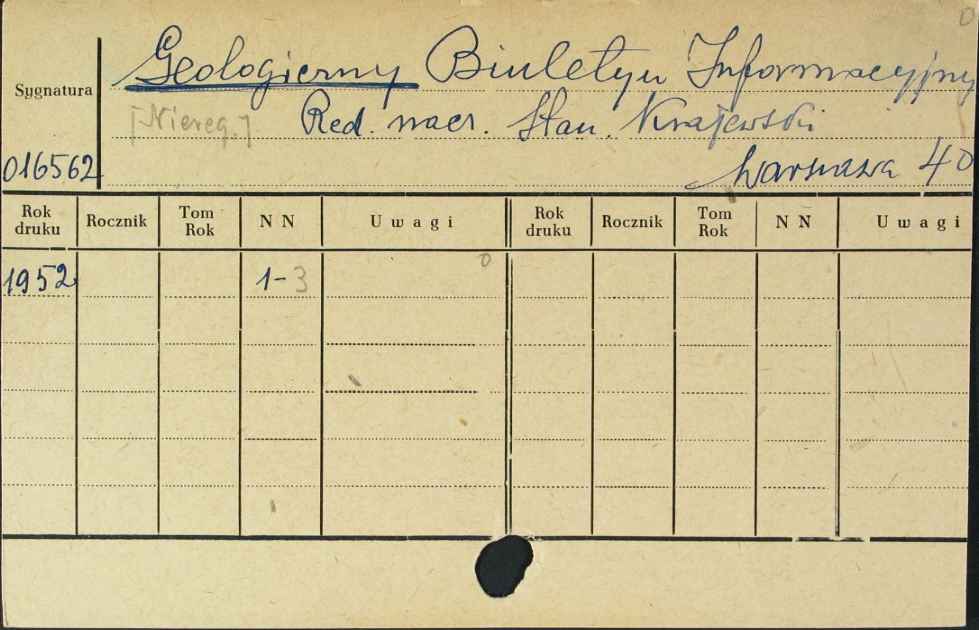 0
Geologiczny Biuletyn Informacyjny
Sygnatura
[Niereg.] Red. nacz. Stan. Krajewski
016562 Warszawa 40
Rok druku Rocznik Tom Rok N N Uwagi Rok druku Rocznik Tom Rok N N Uwagi
0
1952 1-3